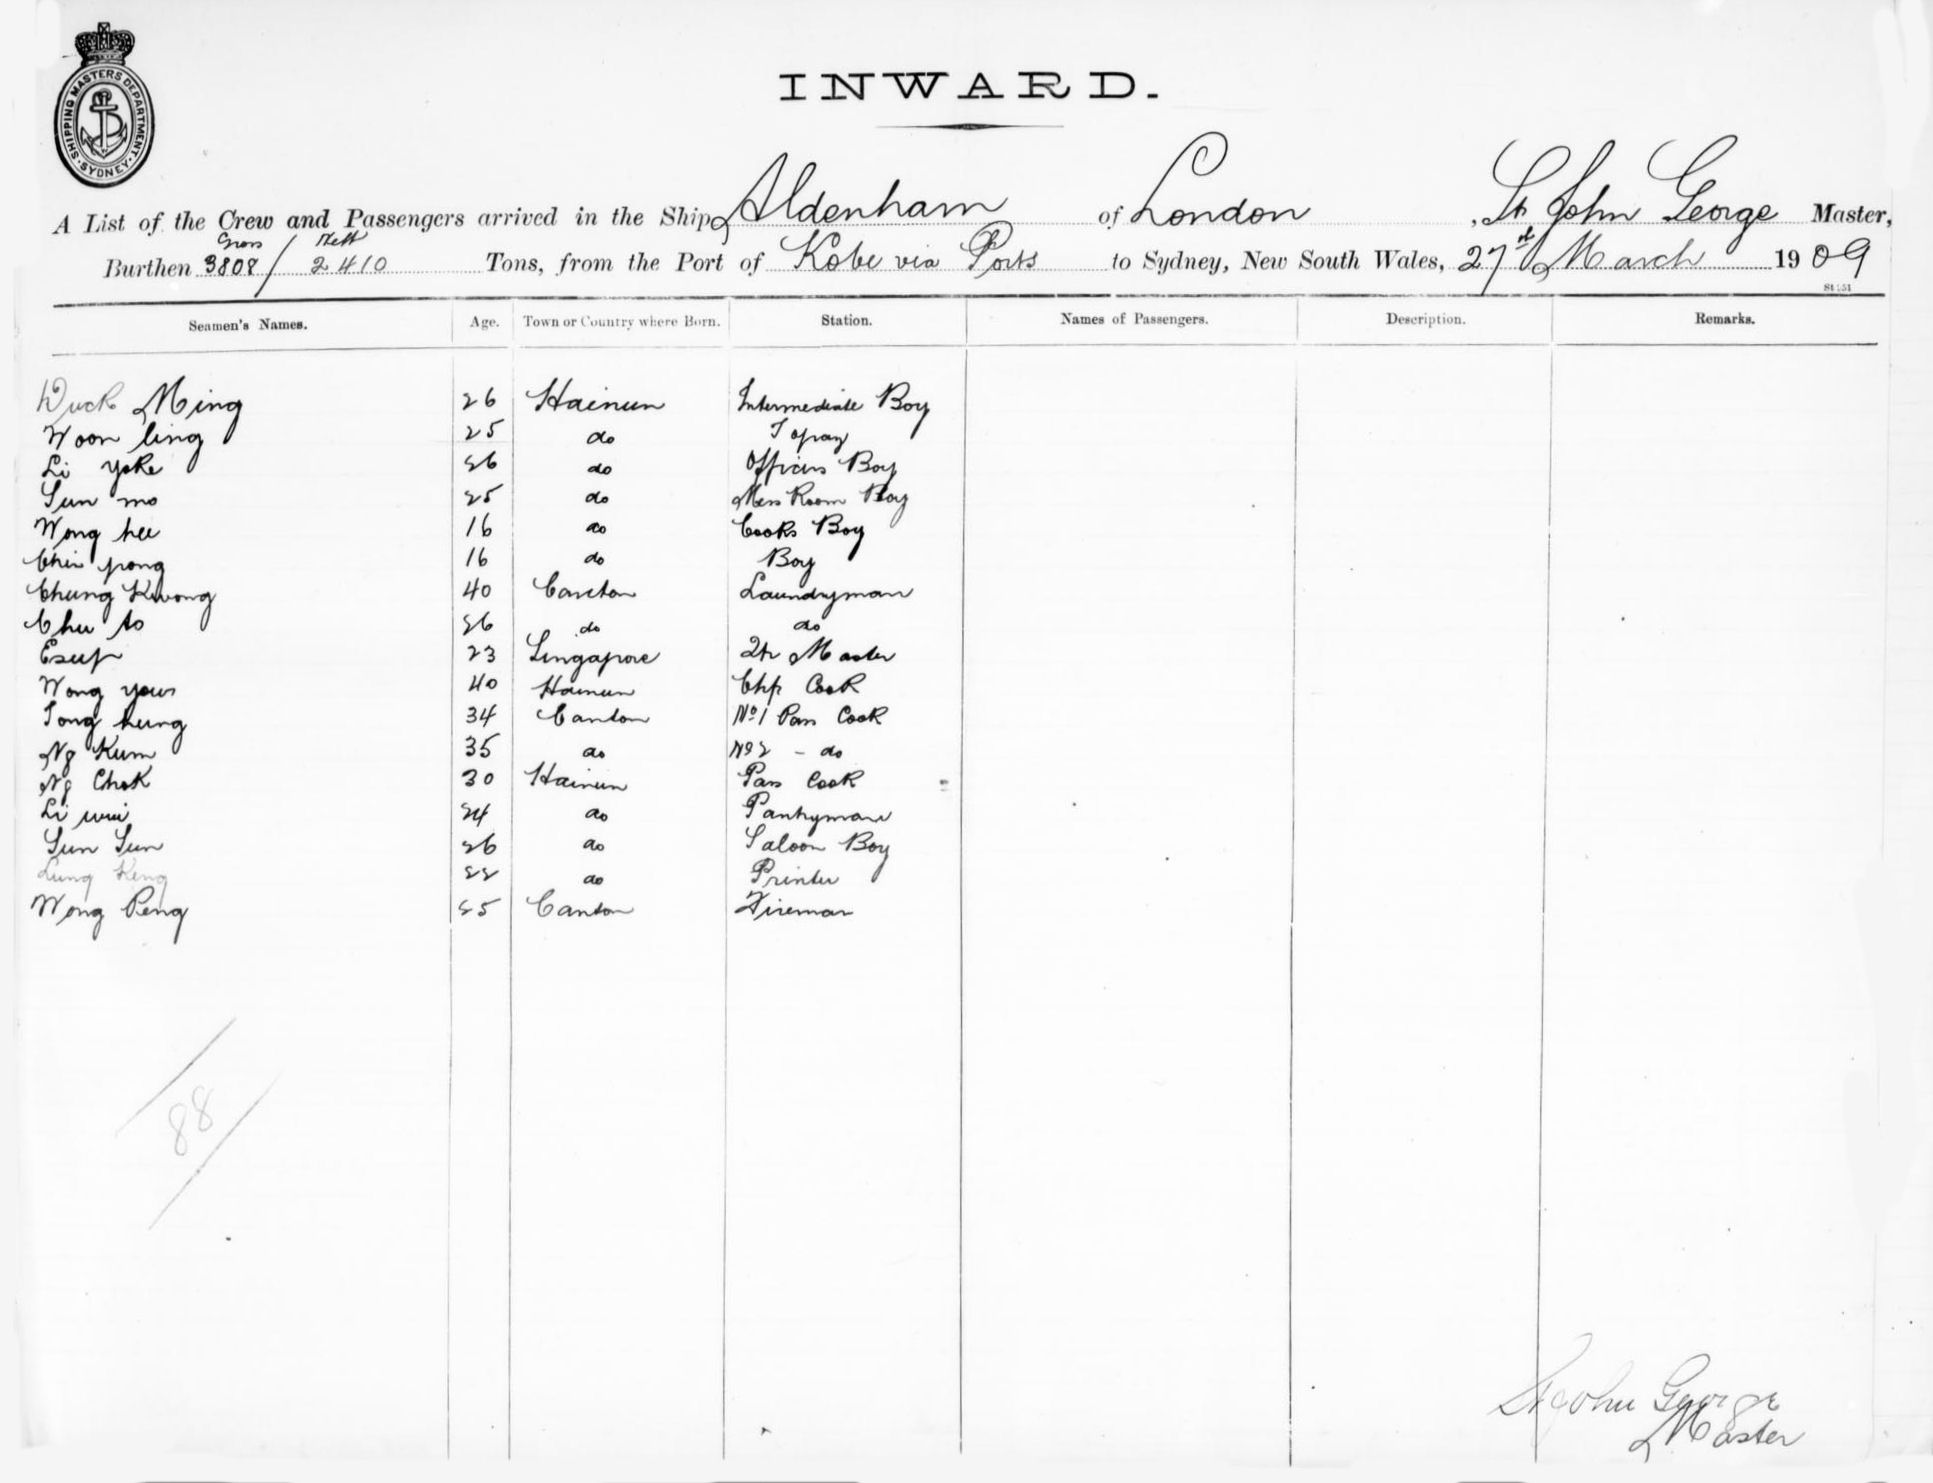 SHIPPING MASTERS DEPARTMENT · SYDNEY ·
INWARD.
A List of the Crew and Passengers arrived in the Ship Aldenham of London, St John George Master,
Gross Nett
Burthen 3808 / 2410 Tons, from the Port of Kobe via Ports to Sydney, New South Wales, 27th March 1909
Seamen's Names. Age. Town or Country where Born. Station. Names of Passengers. Description. Remarks.
Duck Ming 26 Hainun Intermediate Boy
Woon ling 25 do Topaz
Li yoke 26 do Officers Boy
Sun mo 25 do Mess Room Boy
Wong hee 16 do Cooks Boy
Chin pong 16 do Boy
Chung Kwong 40 Canton Laundryman
Chu to 26 do do
Esup 23 Singapore Qr Master
Wong 40 Hainun Chf Cook
Tong hung 34 Canton No 1 Pass Cook
Ng Kum 35 do No 2 - do
Ng Chok 30 Hainun Pass Cook
Li 24 do Pantryman
Sun Sun 26 do Saloon Boy
Lung Keng 22 do Printer
Wong Peng 25 Canton Fireman
88
St John George
Master